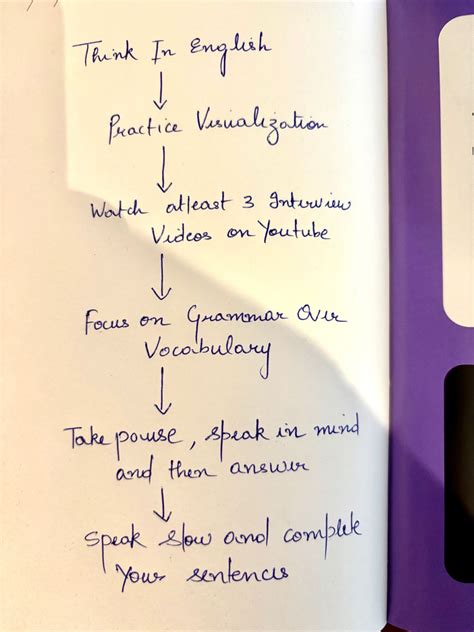 Think In English
Practice Visualization
Watch atleast 3 Interview
Videos on Youtube
Focus on Grammar Over
Vocabulary
Take pause, speak in mind
and then answer
Speak slow and complete
Your sentences